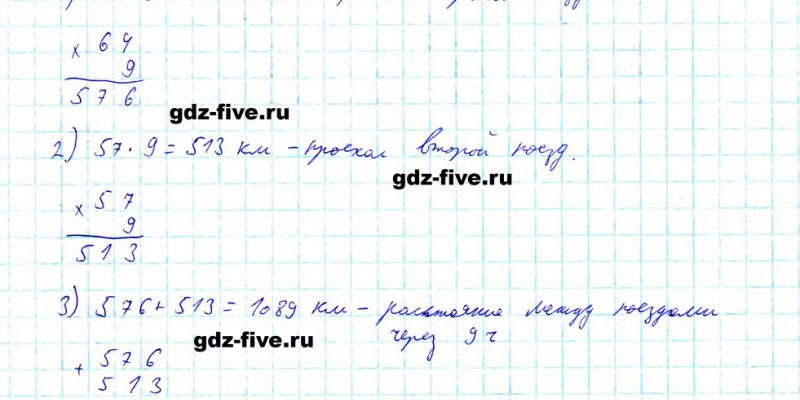 × 64
9
576
gdz-five.ru
2) 57 · 9 = 513 км – проехал второй поезд.
gdz-five.ru
× 57
9
513
3) 576 + 513 = 1089 км – расстояние между поездами
через 9 ч
gdz-five.ru
+ 576
513